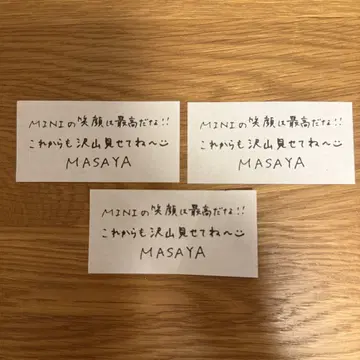 MINIの笑顔は最高だな!!
これからも沢山見せてね〜
MASAYA
MINIの笑顔は最高だな!!
これからも沢山見せてね〜
MASAYA
MINIの笑顔は最高だな!!
これからも沢山見せてね〜
MASAYA